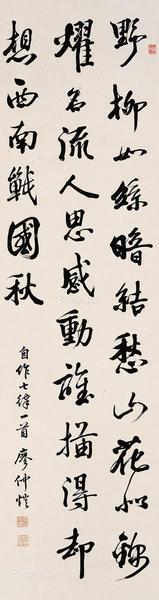 野柳如絲暗結愁山花似錦
燿名流人思感動誰描得却
想西南戰國秋
自作七律一首廖仲愷